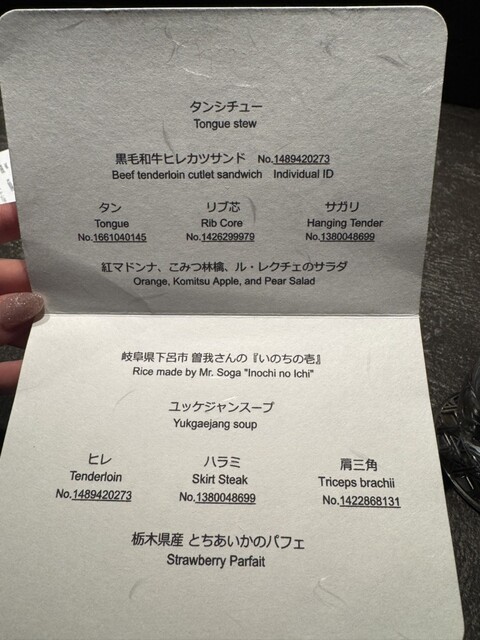 タンシチュー
Tongue stew
黒毛和牛ヒレカツサンド No.1489420273
Beef tenderloin cutlet sandwich Individual ID
タン リブ芯 サガリ
Tongue Rib Core Hanging Tender
No.1661040145 No.1426299979 No.1380048699
紅マドンナ、こみつ林檎、ル・レクチェのサラダ
Orange, Komitsu Apple, and Pear Salad
岐阜県下呂市 曽我さんの『いのちの壱』
Rice made by Mr. Soga "Inochi no Ichi"
ユッケジャンスープ
Yukgaejang soup
ヒレ ハラミ 肩三角
Tenderloin Skirt Steak Triceps brachii
No.1489420273 No.1380048699 No.1422868131
栃木県産 とちあいかのパフェ
Strawberry Parfait